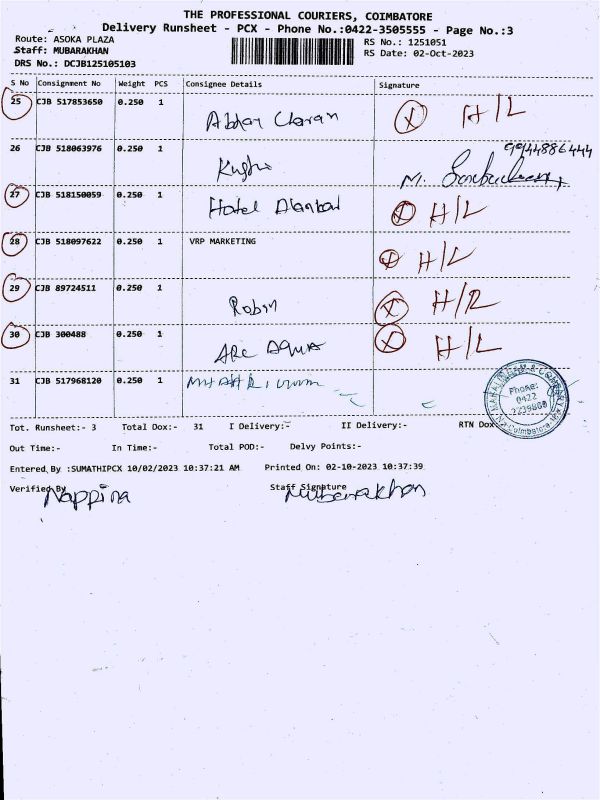 THE PROFESSIONAL COURIERS, COIMBATORE
Delivery Runsheet - PCX - Phone No.:0422-3505555 - Page No.:3
Route: ASOKA PLAZA
RS No.: 1251051
Staff: MUBARAKHAN
RS Date: 02-Oct-2023
DRS No.: DCJB125105103
S No Consignment No Weight PCS Consignee Details Signature
25 CJB 517853650 0.250 1 Charan H/L
9944886444
26 CJB 518063976 0.250 1 M.
27 CJB 518150059 0.250 1 Hotel H/L
28 CJB 518097622 0.250 1 VRP MARKETING H/L
29 CJB 89724511 0.250 1 Robin H/R
30 CJB 300488 0.250 1 H/L
31 CJB 517968120 0.250 1
Phone:
0422
Coimbatore
Tot. Runsheet:- 3 Total Dox:- 31 I Delivery:- II Delivery:- RTN Dox
Out Time:- In Time:- Total POD:- Delvy Points:-
Entered By :SUMATHIPCX 10/02/2023 10:37:21 AM Printed On: 02-10-2023 10:37:39
Verified By Nappina Staff Signature Mubarakhan